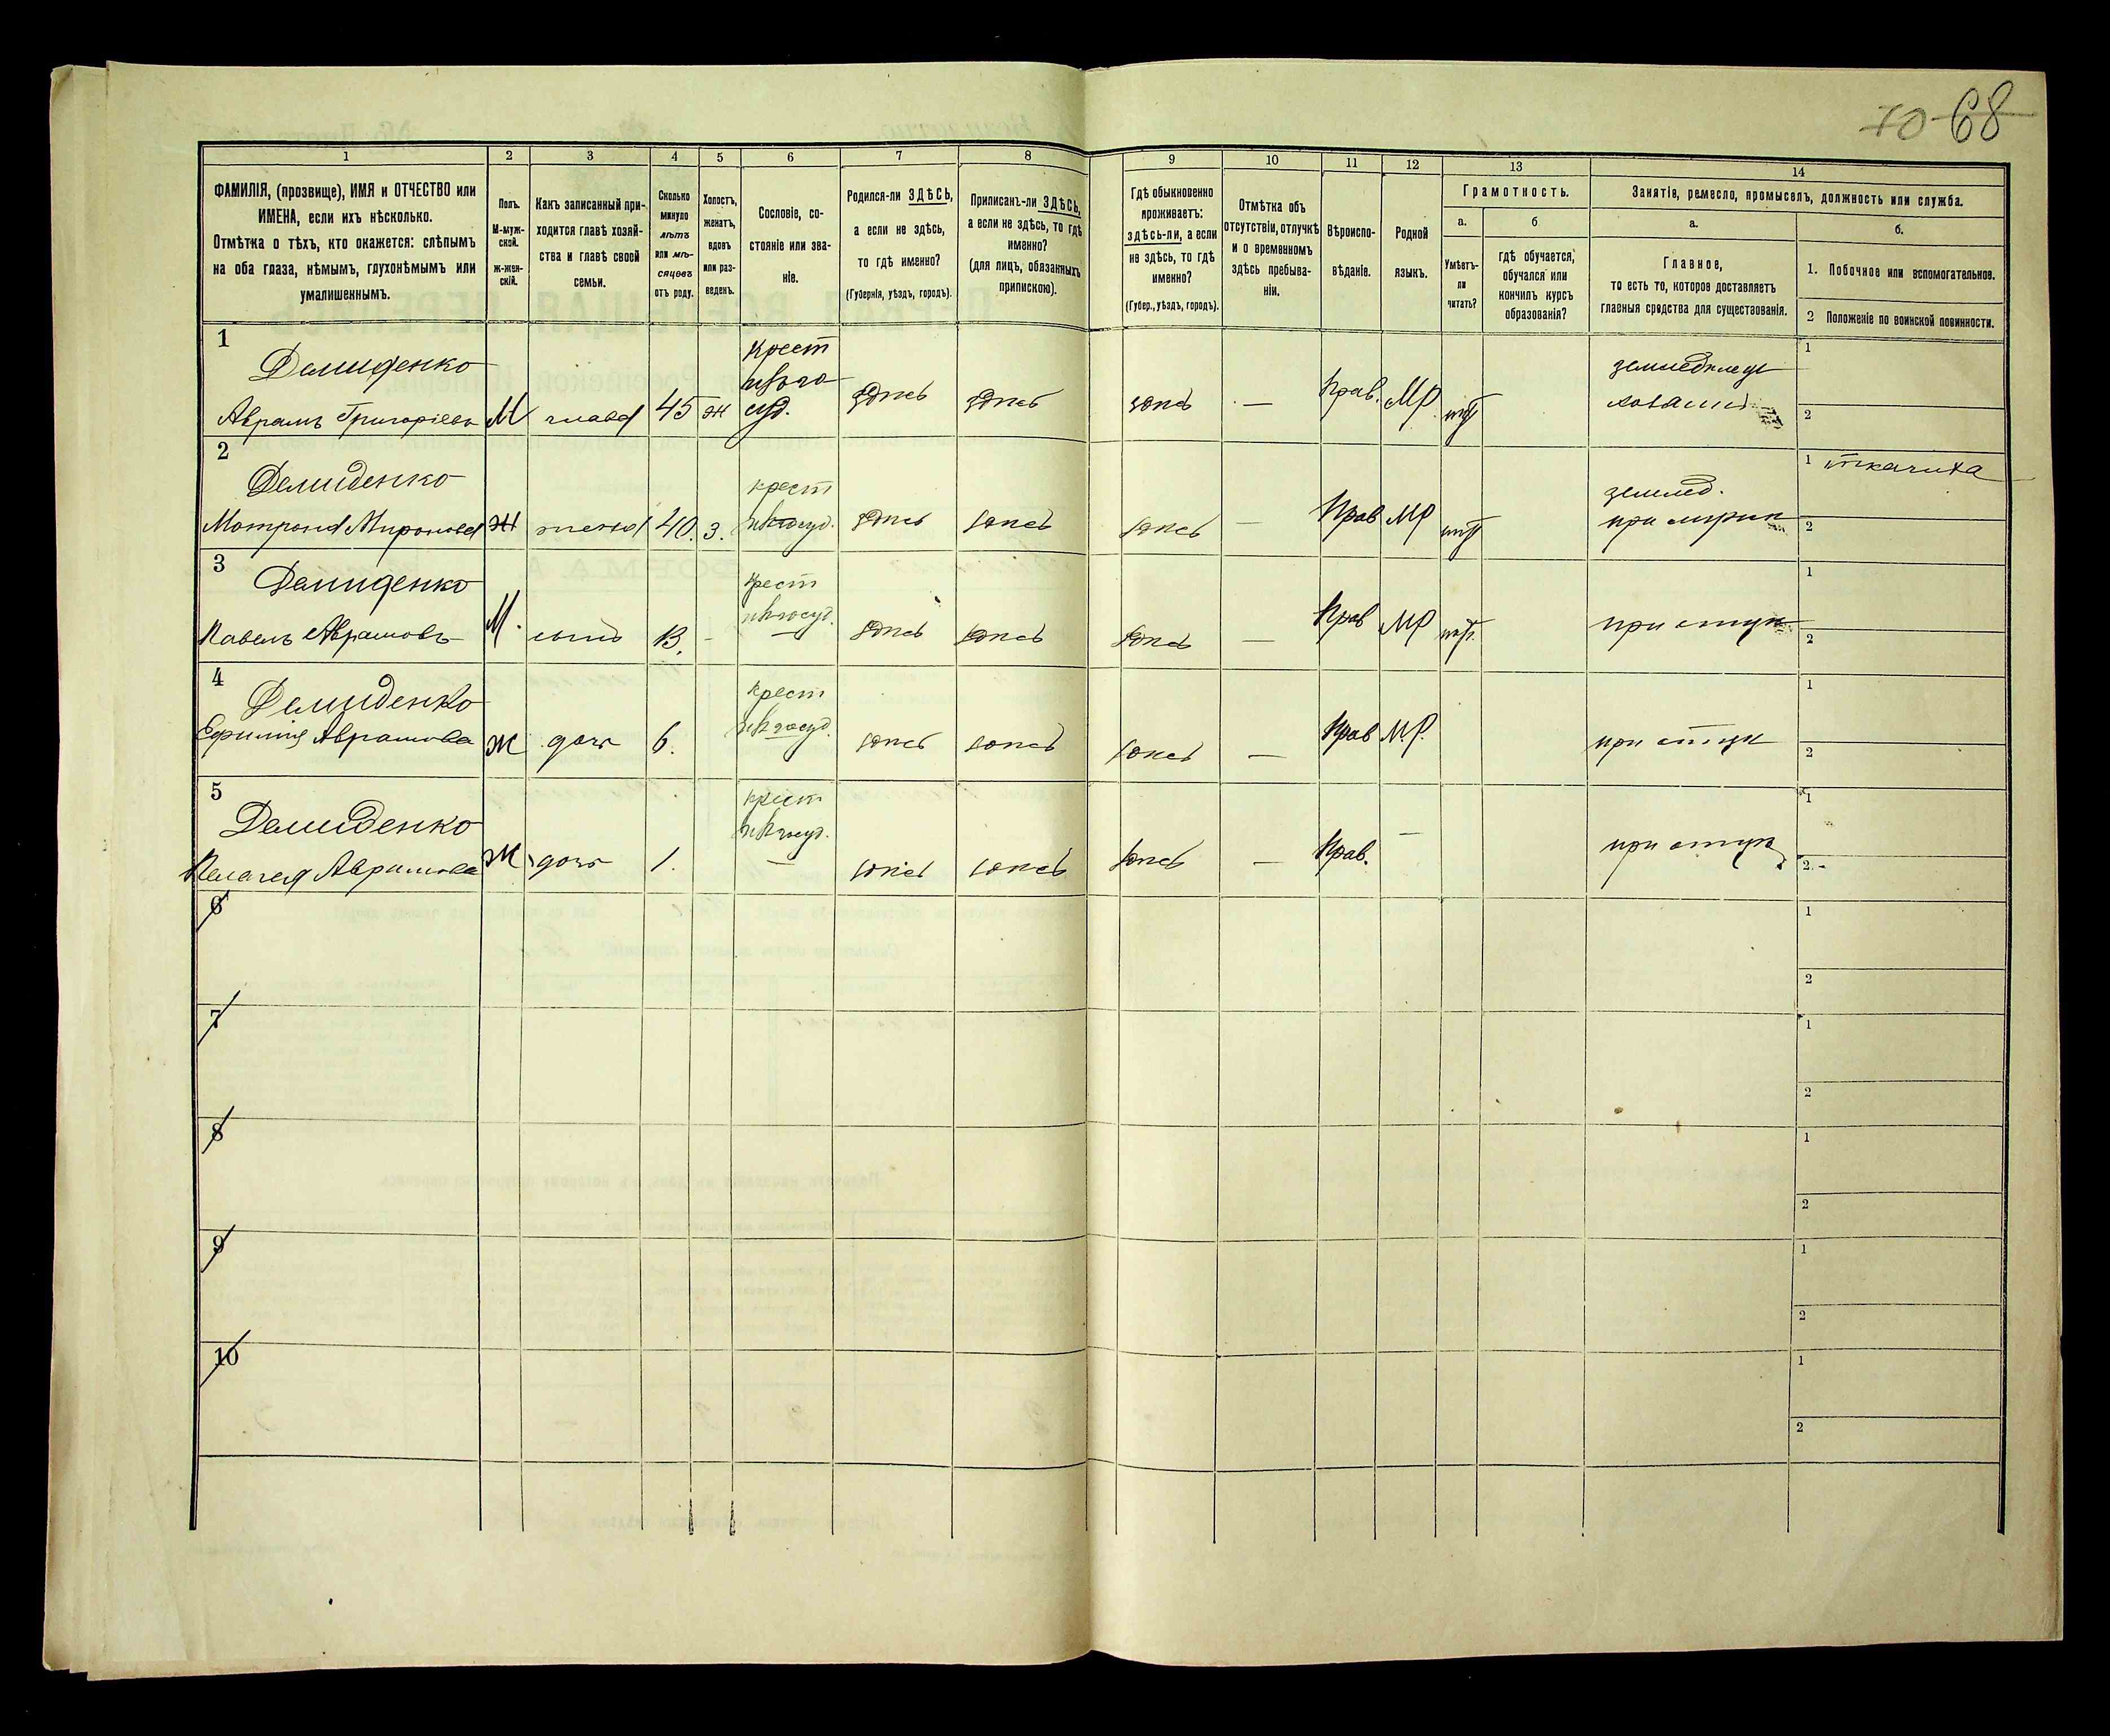 70 68
1 2 3 4 5 6 7 8 9 10 11 12 13 14
ФАМИЛІЯ, (прозвище), ИМЯ и ОТЧЕСТВО или
ИМЕНА, если ихъ нѣсколько.
Отмѣтка о тѣхъ, кто окажется: слѣпымъ
на оба глаза, нѣмымъ, глухонѣмымъ или
умалишеннымъ.
Полъ.
М-муж-
ской.
ж-жен-
скій.
Какъ записанный при-
ходится главѣ хозяй-
ства и главѣ своей
семьи.
Сколько
минуло
лѣтъ
или мѣ-
сяцевъ
отъ роду.
Холостъ,
женатъ,
вдовъ
или раз-
веденъ.
Сословіе, со-
стояніе или зва-
ніе.
Родился-ли ЗДѢСЬ,
а если не здѣсь,
то гдѣ именно?
(Губернія, уѣздъ, городъ).
Приписанъ-ли ЗДѢСЬ,
а если не здѣсь, то гдѣ
именно?
(для лицъ, обязанныхъ
припискою).
Гдѣ обыкновенно
проживаетъ:
здѣсь-ли, а если
не здѣсь, то гдѣ
именно?
(Губер., уѣздъ, городъ).
Отмѣтка объ
отсутствіи, отлучкѣ
и о временномъ
здѣсь пребыва-
ніи.
Вѣроиспо-
вѣданіе.
Родной
языкъ.
Грамотность.
а.
Умѣетъ-
ли
читать?
б
гдѣ обучается,
обучался или
кончилъ курсъ
образованія?
Занятія, ремесло, промыселъ, должность или служба.
а.
Главное,
то есть то, которое доставляетъ
главныя средства для существованія.
б.
1. Побочное или вспомогательное.
2 Положеніе по воинской повинности.
1
Демиденко
Аврамъ Григоріевъ М глава 45 ж
Крест
здѣсь здѣсь здѣсь — Прав. МР нѣт
1
2
2
Демиденко
Матрона Миронова Ж жена 40. з.
крест
здѣсь здѣсь здѣсь — Прав МР нѣт
землед.
при мужѣ
1 ткачиха
2
3
Демиденко
Павелъ Аврамовъ М. сынъ 13. -
крест
здѣсь здѣсь здѣсь — Прав МР нѣт.
при отцѣ
1
2
4
Демиденко
Ефимія Аврамова Ж дочь 6.
крест
здѣсь здѣсь здѣсь — Прав М.Р.
при отцѣ
1
2
5
Демиденко
Пелагея Аврамова Ж дочь 1.
крест
—
здѣсь здѣсь здѣсь — Прав. —
при отцѣ
1
2
6
1
2
7
1
2
8
1
2
9
1
2
10
1
2